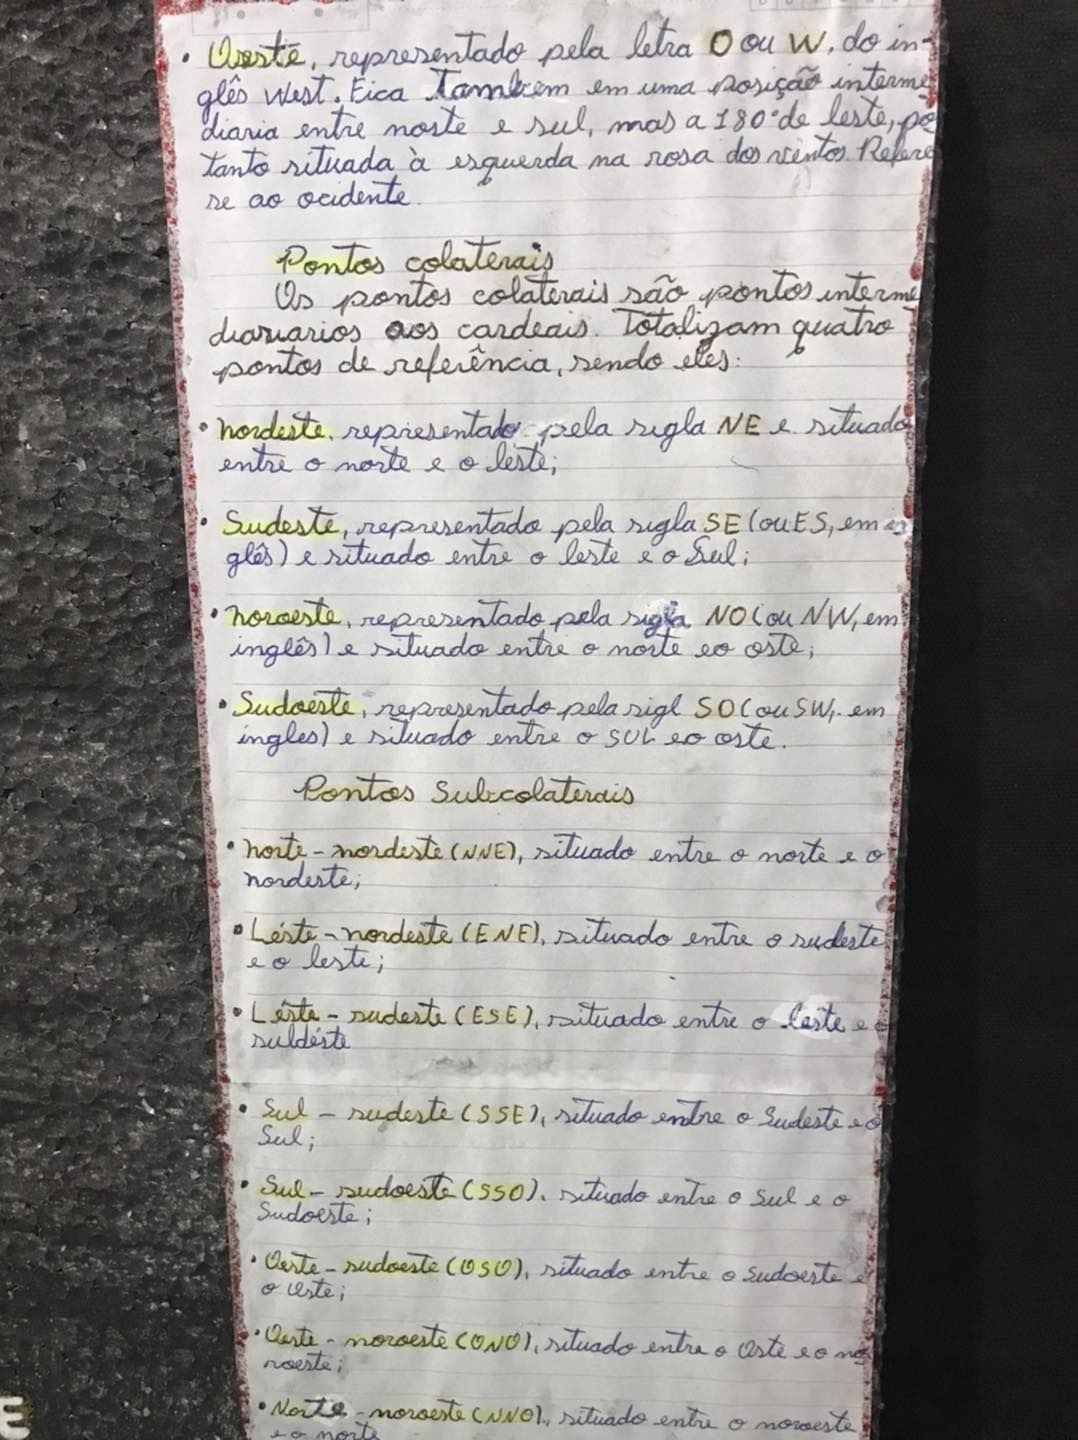 • Oeste, representado pela letra O ou W, do in-
glês West. Fica Também em uma posição interme
diaria entre norte e sul, mas a 180° de leste, po
tanto situada à esquerda na rosa dos ventos. Refere
se ao ocidente.
Pontos colaterais
Os pontos colaterais são pontos interme
diaruarios aos cardeais. Totalizam quatro
pontos de referência, sendo eles:
• nordeste, representado pela sigla NE e situado
entre o norte e o leste;
• Sudeste, representado pela sigla SE (ou ES, em
glês) e situado entre o leste e o Sul;
• noroeste, representado pela sigla NO (ou NW, em
inglês) e situado entre o norte e o oste;
• Sudoeste, representado pela sigl SO (ou SW, em
ingles) e situado entre o SUL e o oste.
Pontos Subcolaterais
• norte - nordeste (NNE), situado entre o norte e o
nordeste;
• Léste - nordeste (ENE), situado entre o sudeste
e o leste;
• Léste - sudeste (ESE), situado entre o leste e o
suldéste
• Sul - sudeste (SSE), situado entre o Sudeste e o
Sul;
• Sul - sudoeste (SSO), situado entre o Sul e o
Sudoeste;
• Oeste - sudoeste (OSO), situado entre o Sudoeste e
o Oeste;
• Oeste - noroeste (ONO), situado entre o Oste e o no
roeste;
• Norte - noroeste (NNO), situado entre o noroeste
e o norte